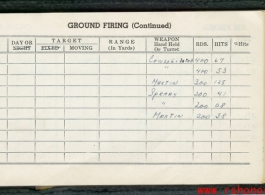 GROUND FIRING (Continued)
DAY OR NIGHT
TARGET
FIXED MOVING
RANGE
(In Yards)
WEAPON
Hand Held
Or Turret
RDS. HITS %Hits
400 67
" 400 53
MARTIN 200 125
SPERRY 200 41
" 200 08
MARTIN 200 28